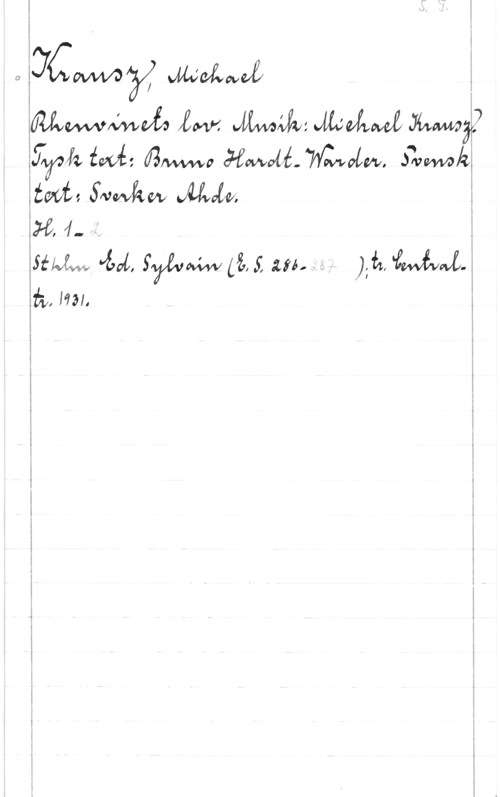 S. T.
Krausz, Michael
Rhenvinets lov. Musik: Michael Krausz.
Tysk text: Bruno Hardt-Warden. Svensk
text: Sverker Ahde.
H. 1-2
Sthlm, Ed. Sylvain (E. S. 286-287 ); tr. Central-
tr. 1931.